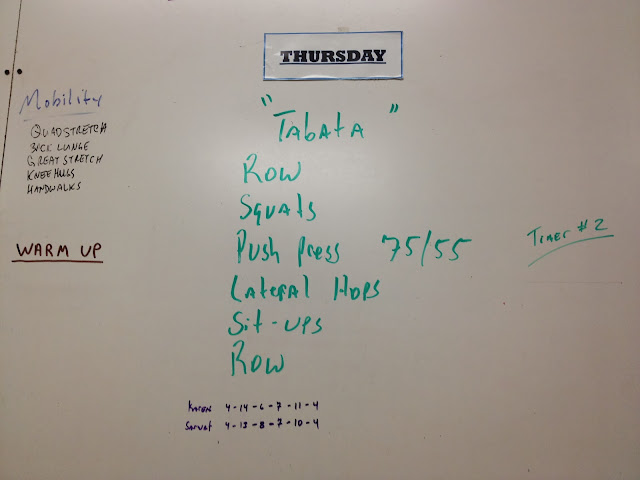 THURSDAY
Mobility
QUAD STRETCH
BACK LUNGE
GREAT STRETCH
KNEE HUGS
HANDWALKS
WARM UP
" Tabata "
Row
Squats
Push Press 75/55
Lateral Hops
Sit-ups
Row
Timer #2
Karen 4-14-6-7-11-4
4-13-8-7-10-4